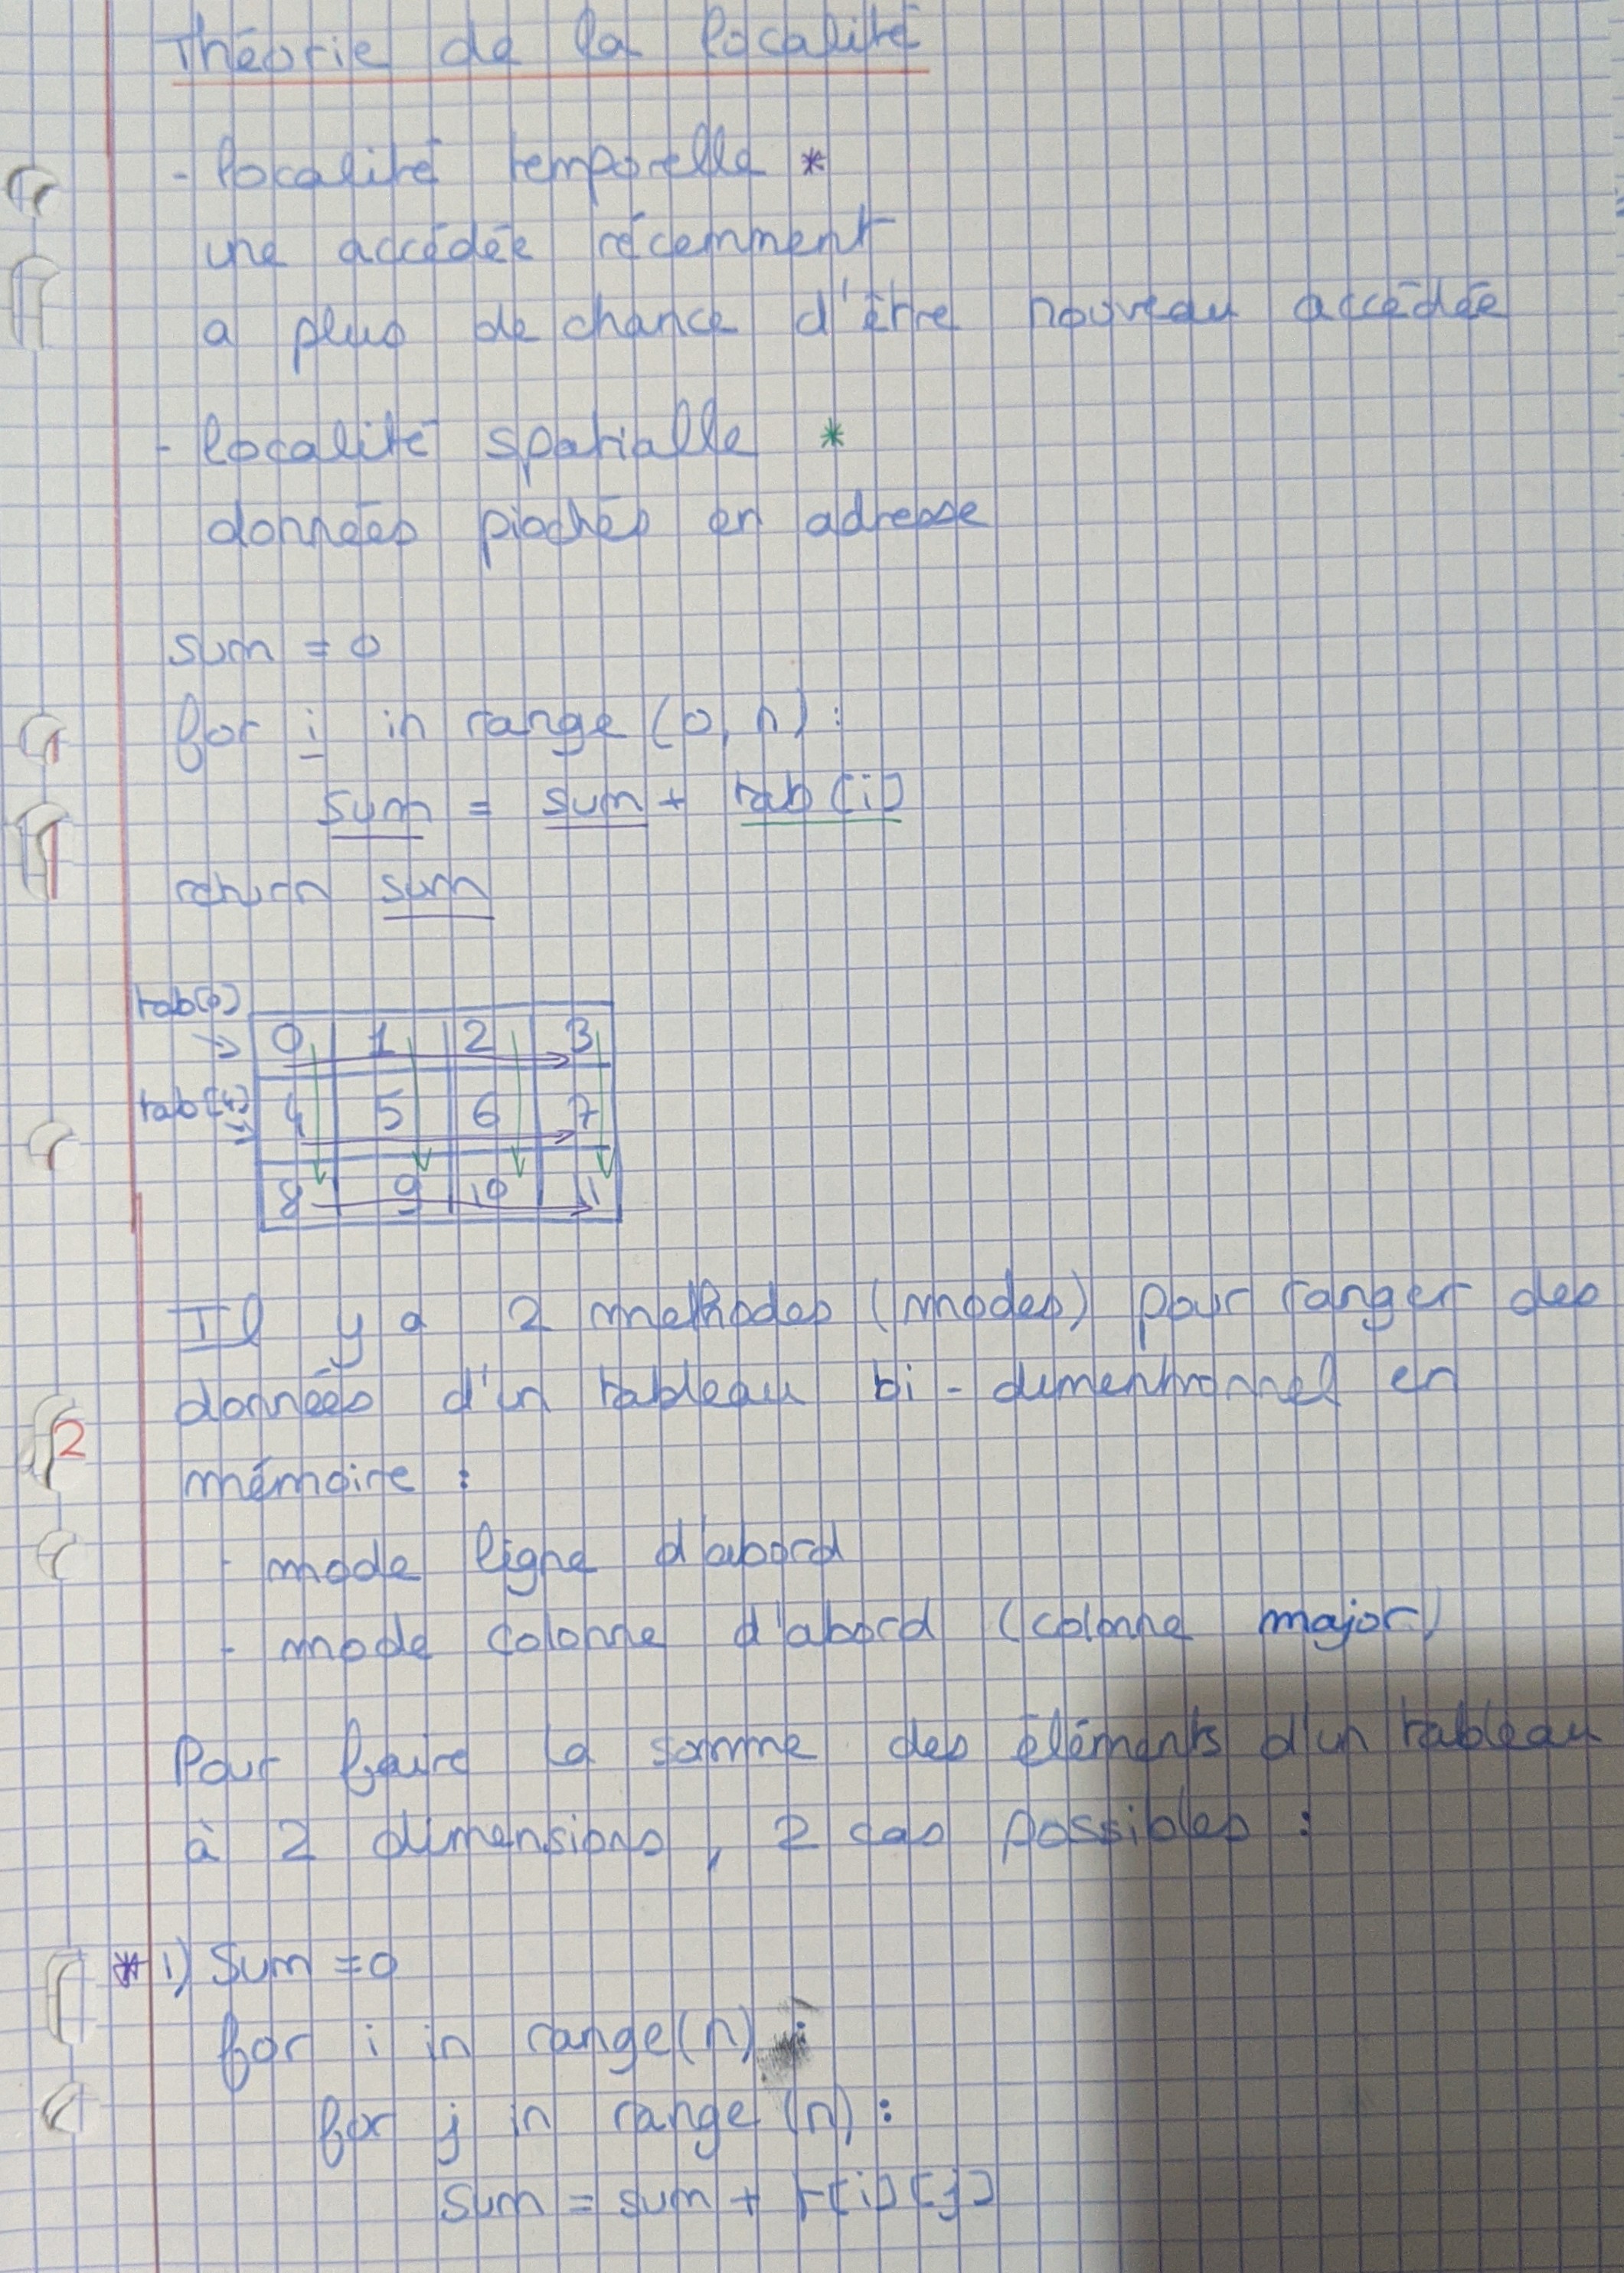 Théorie de la localité
- localité temporelle *
une accédée récemment
a plus de chance d'être nouveau accédée
- localité spatialle *
données piochés en adresse
sum = 0
for i in range (0, n) :
sum = sum + tab [i]
return sum
tab[0]
→ 0 1 2 3
tab[4]
→ 4 5 6 7
8 9 10 11
Il y a 2 methodes (modes) pour ranger des
données d'un tableau bi-dimentionnel en
mémoire :
- mode ligne d'abord
- mode colonne d'abord (colonne major)
Pour faire la somme des éléments d'un tableau
à 2 dimensions, 2 cas possibles :
* 1) Sum = 0
for i in range(n) :
for j in range (n) :
Sum = sum + t[i][j]
2